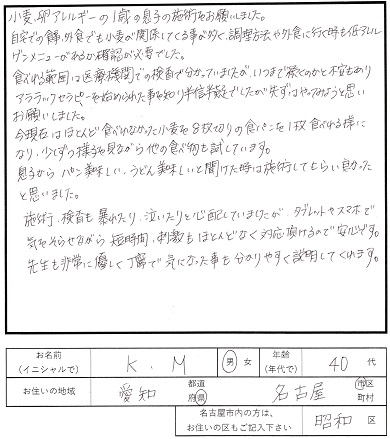 小麦、卵アレルギーの1歳の息子の施術をお願いしました。
自宅での食事、外食でも小麦が関係してくる事が多く、調理方法や外食に行く時も低アレル
ゲンメニューがあるか確認が必要でした。
食べれる範囲は医療機関での検査で分かっていましたが、いつまで続くのかと不安もあり
アラジックセラピーを始められた事を知り半信半疑でしたが先ずはやってみようと思い
お願いしました。
今現在はほとんど食べれなかった小麦を8枚切りの食パンを1枚食べれる様に
なり、少しずつ様子を見ながら他の食べ物も試しています。
息子から パン美味しい、うどん美味しいと聞けた時は施術してもらい良かった
と思いました。
施術、検査も暴れたり、泣いたりと心配していましたが、タブレットやスマホで
気をそらせながら短時間、刺激もほとんどなく対応頂けるので安心です。
先生も非常に優しく丁寧で気になった事も分かりやすく説明してくれます。
お名前
(イニシャルで)
K.M
男 女
年齢
(年代で)
40 代
お住いの地域
愛知
都道
府県
名古屋
市区
町村
名古屋市内の方は、
お住いの区もご記入下さい
昭和 区